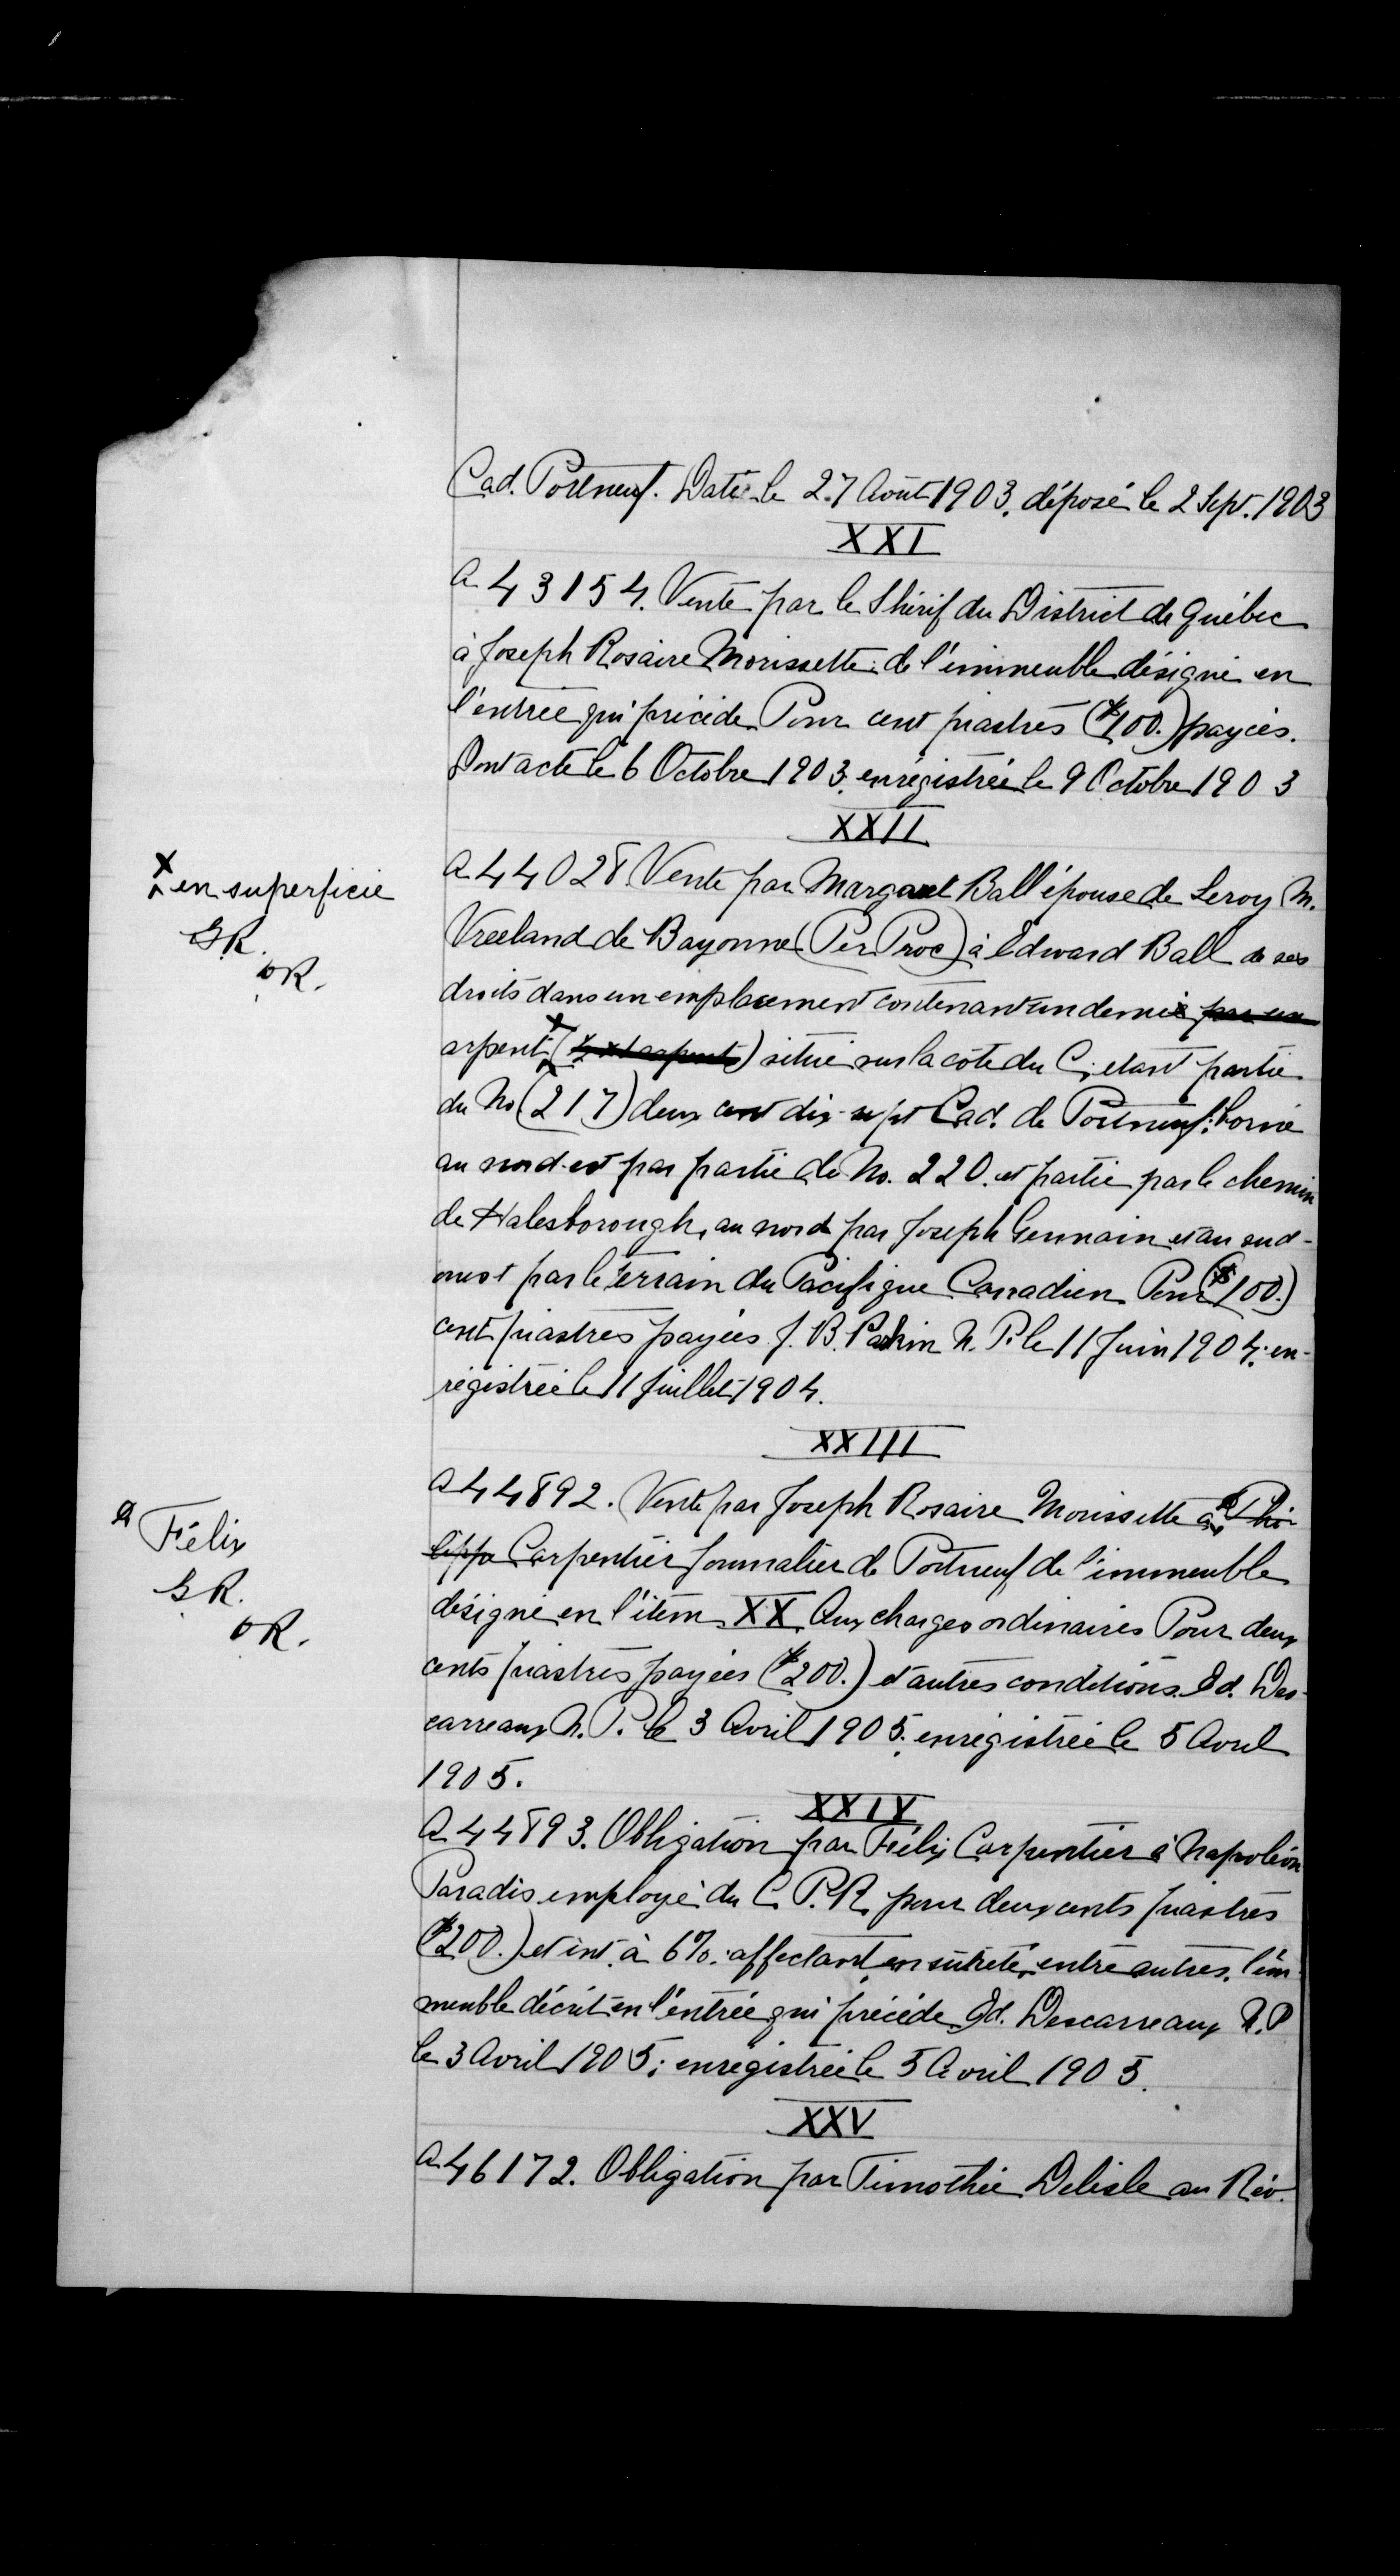 Cad. Portneuf. Daté le 27 Août 1903, déposé le 2 Sept. 1903
XXI
A 43154. Vente par le Shérif du District de Québec
à Joseph Rosaire Morissette: de l'immeuble désigné en
l'entrée qui précède Pour cent piastres ($100.) payées.
Dont acte le 6 Octobre 1903, enrégistrée le 9 Octobre 1903
XXII
A 44028. Vente par Margaret Ball épouse de Leroy M.
x en superficie
G.R.
O.R.
Vreeland de Bayonne (Per Proc) à Edward Ball de ses
droits dans un emplacement contenant un demie par un
arpent x ( arpents) situé sur la côte du C; étant partie
du No (217) deux cent dix-sept Cad. de Portneuf: borné
au nord-est par partie de No. 220. et partie par le chemin
de Halesborough, au nord par Joseph Germain et au sud-
ouest par le terrain du Pacifique Canadien Pour ($100.)
cent piastres payées J. B. N. P. le 11 Juin 1904; en-
régistrée le 11 Juillet 1904.
XXIII
A 44892. Vente par Joseph Rosaire Morissette à a Phi-
a Félix
G.R.
O.R.
lippe Carpentier Journalier de Portneuf de l'immeuble
désigné en l'item XX Aux charges ordinaires Pour deux
cents piastres payées ($200.) et autres conditions. Ed. Des-
carreaux N. P. le 3 Avril 1905; enrégistrée le 5 Avril
1905.
XXIV
A 44893. Obligation par Félix Carpentier à Napoléon
Paradis employé du C. P. R. pour deux cents piastres
($200.) et int. à 6%. affectant en sûreté, entre autres, l'im-
meuble décrit en l'entrée qui précède Ed. Descarreaux N. P
le 3 Avril 1905; enrégistrée le 5 Avril 1905.
XXV
A 46172. Obligation par Timothée Delisle au Rév.